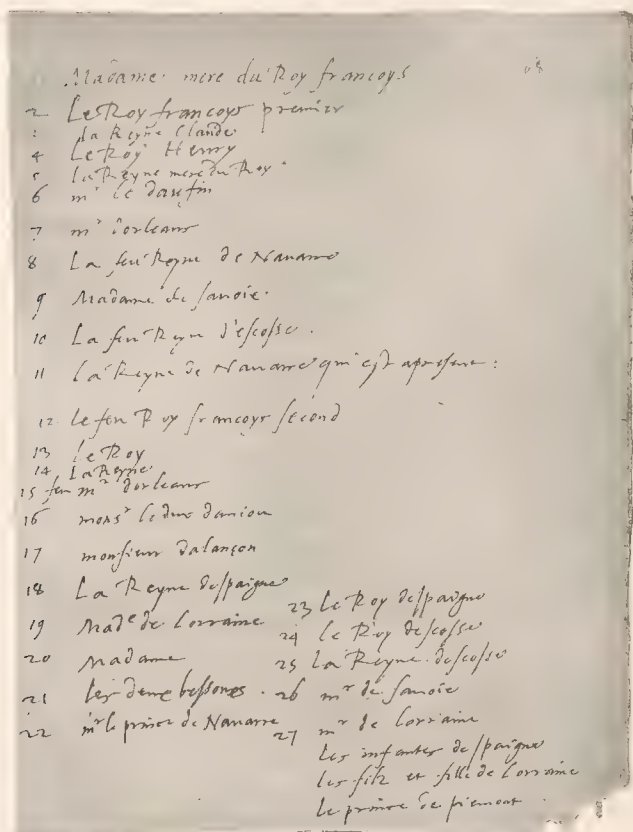 Madame mere du Roy francoys
2 Le Roy francoys premier
la Reyne Claude
4 Le Roy Henry
5 la Reyne mere du Roy
6 mr le daufin
7 mr dorleans
8 La feu Royne de Navarre
9 Madame de savoie
10 La feu Reyne d'escosse
11 la Reyne de Navarre qui est apresent
12 le feu Roy francoys second
13 le Roy
14 La Reyne
15 feu mr dorleans
16 monsr le duc daniou
17 monsieur dalançon
18 La Reyne despaigne
19 Made de Lorraine
20 Madame
21 les deux bessones
22 mr le prince de Navarre
23 le Roy despaigne
24 le Roy descosse
25 La Reyne descosse
26 mr de savoie
27 mr de lorraine
les infantes despaigne
les filz et fille de Lorraine
le prince de piemont